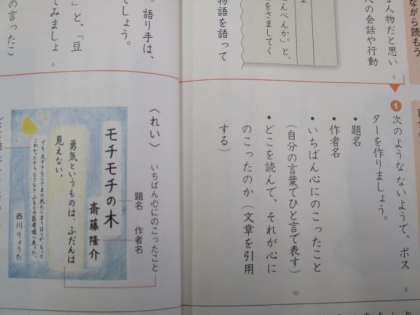 ながら読もう
な人物だと思い
への会話や行動
物語を語って
語り手は、
でしょう。
」と、「豆
てみましょ
の言ったこ
1 次のような ないようで、ポス
ターを作りましょう。
・題名
・作者名
・いちばん心にのこったこと
(自分の言葉でひと言で表す)
・どこを読んで、それが心に
のこったのか(文章を引用
する)
〈れい〉
いちばん心にのこったこと
題名 作者名
モチモチの木
斎藤隆介
勇気というものは、ふだんは
見えない。
西川りょうた